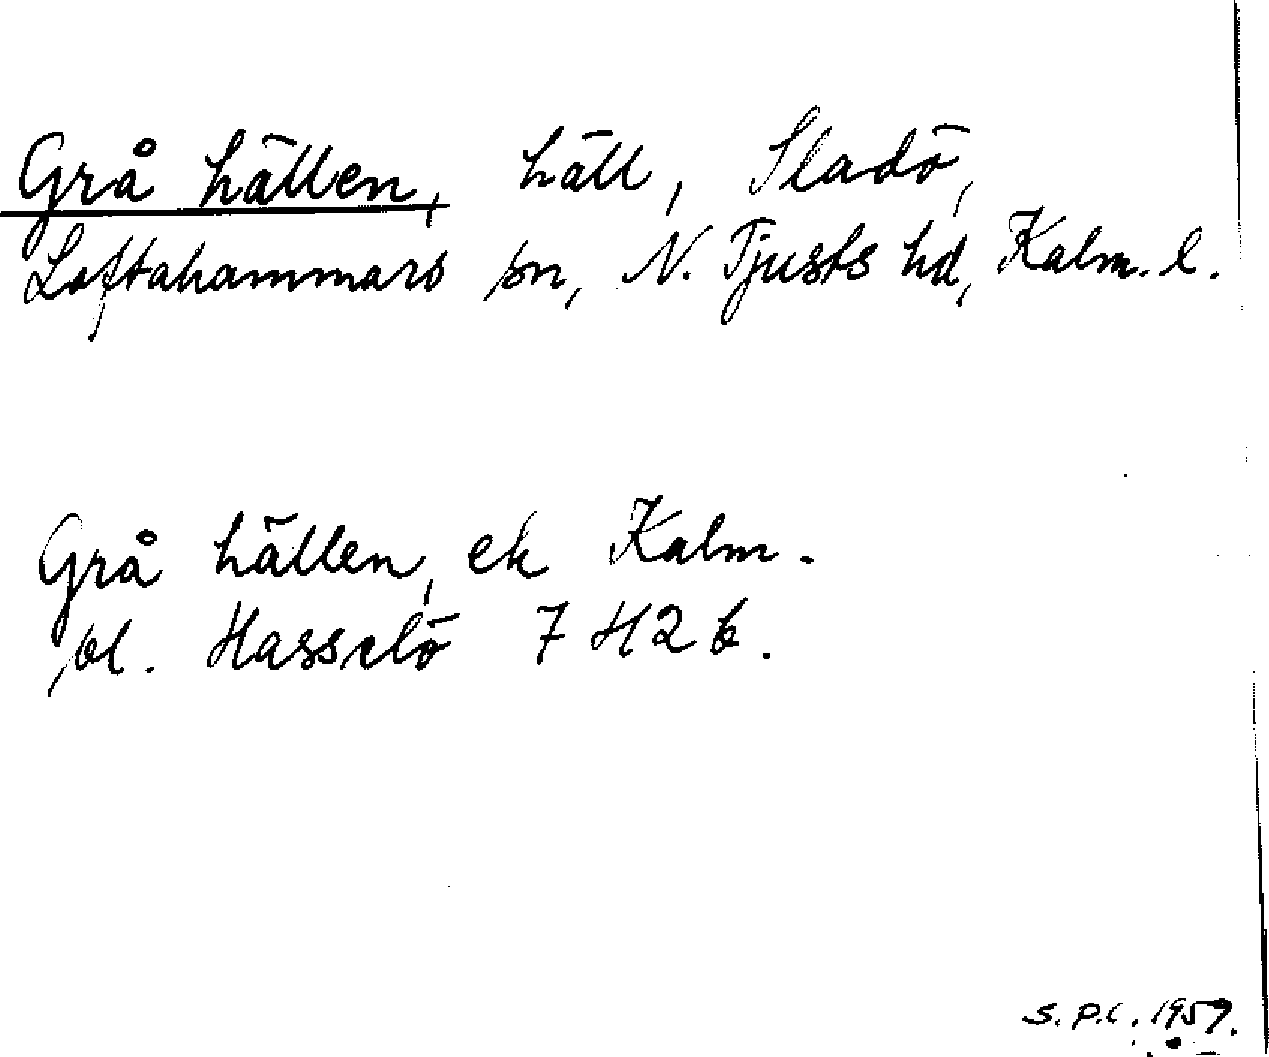 Grå hällen, häll, Sladö,
Loftahammars sn, N. Tjusts hd, Kalm. l.
Grå hällen, ek Kalm.
bl. Hasselö 7 H 2 b.
S.P.C. 1957.